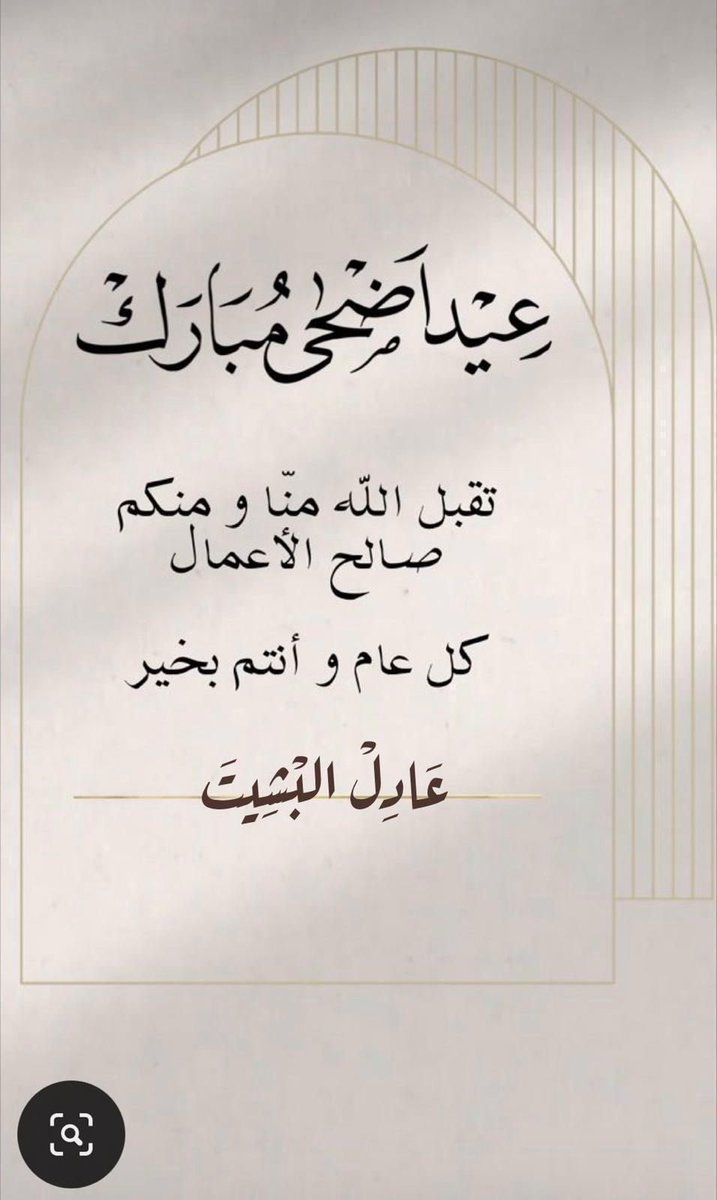 عِيْد اَضْحٰى مُبَارَكْ
تقبل اللّه منّا و منكم
صالح الأعمال
كل عام و أنتم بخير
عَادِلْ البْشِيتَ